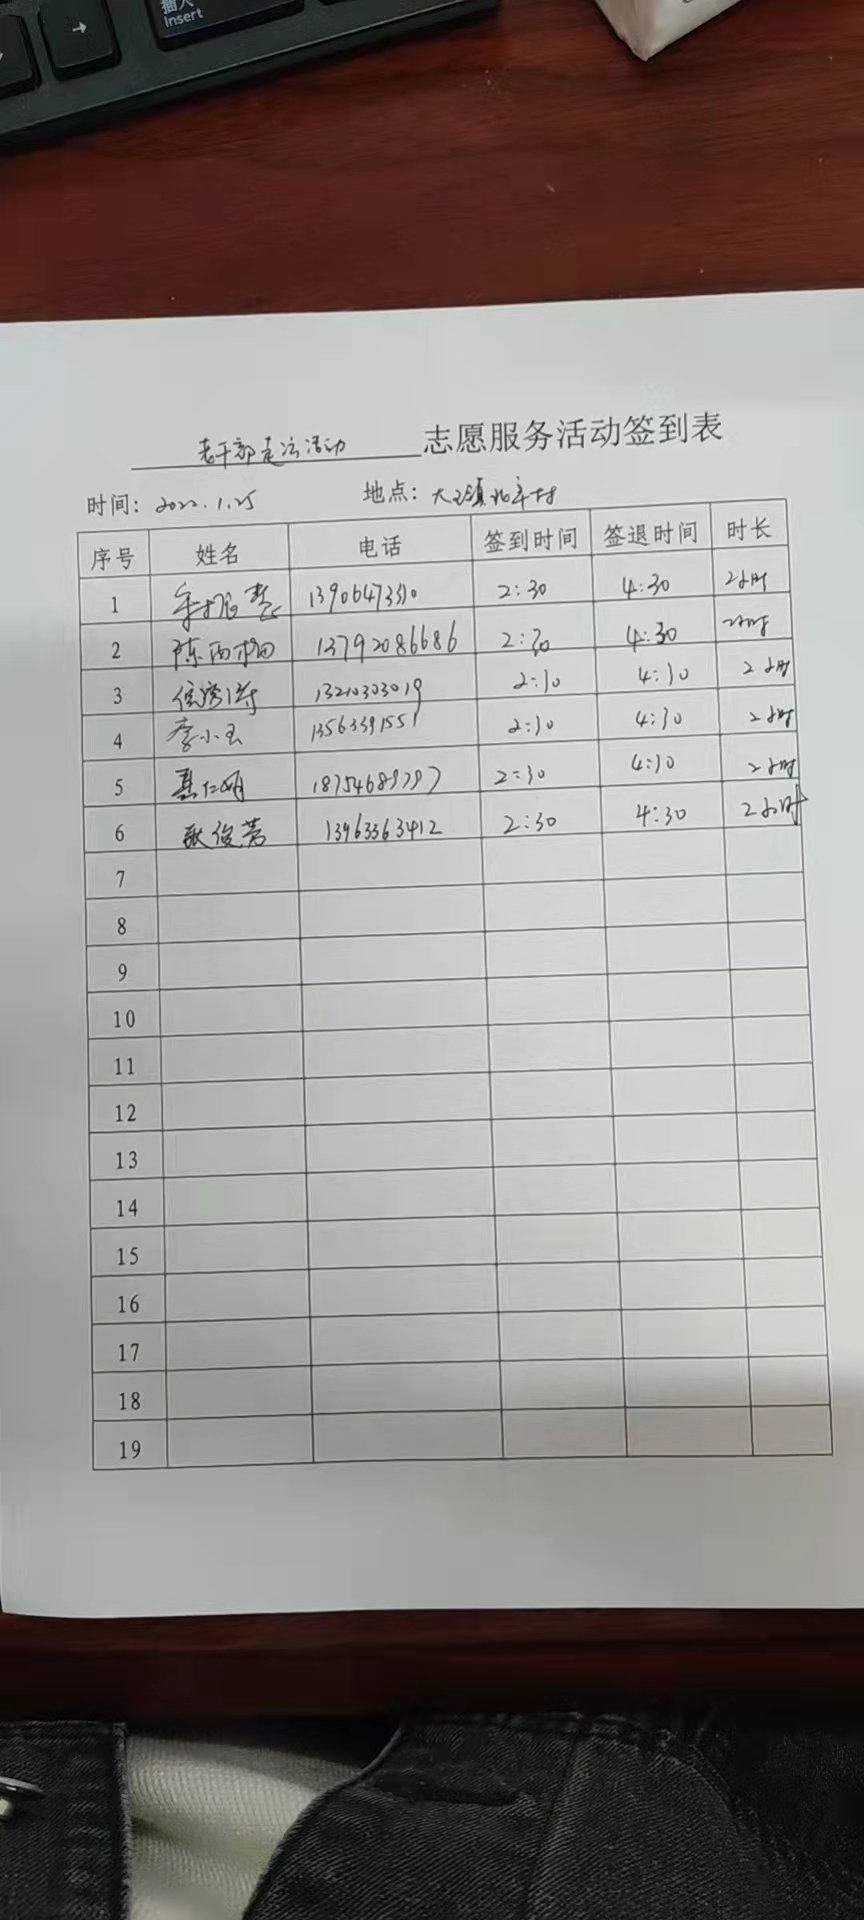 插入
Insert
老干部走访活动 志愿服务活动签到表
时间: 2022.1.25 地点: 大王镇北
序号 姓名 电话 签到时间 签退时间 时长
1 13906473310 2:30 4:30 2小时
2 陈 13792086686 2:30 4:30 2小时
3 13210303019 2:30 4:30 2小时
4 李小玉 13563391551 2:30 4:30 2小时
5 聂仁娟 18754689797 2:30 4:30 2小时
6 耿俊芳 13963363412 2:30 4:30 2小时
7
8
9
10
11
12
13
14
15
16
17
18
19